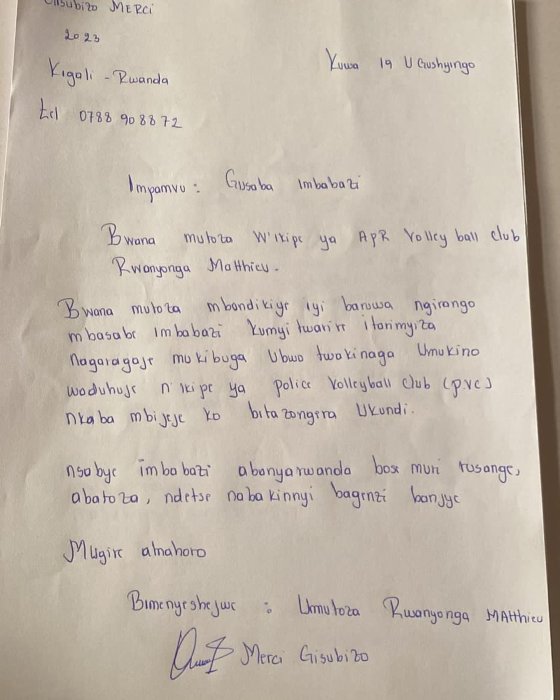 Gisubizo MERCi
2023
Kigali - Rwanda
Kuwa 19 UGushyingo
tel 0788 908872
Impamvu : Gusaba imbabazi
Bwana mutoza W'ikipe ya APR Volley ball club
Rwanyonga Matthieu.
Bwana mutoza mbandikiye iyi baruwa ngirango
mbasabe imbabazi kumyitwarire itarimyiza
nagaragaje mukibuga Ubwo twakinaga Umukino
waduhuje n'ikipe ya police Volleyball club (p.v.c)
nkaba mbijeje ko bitazongera Ukundi.
nsabye imbabazi abanyarwanda bose muri rusange,
abatoza, ndetse nabakinnyi bagenzi banjye
Mugire amahoro
Bimenyeshejwe : Umutoza Rwanyonga MAtthieu
Merci Gisubizo